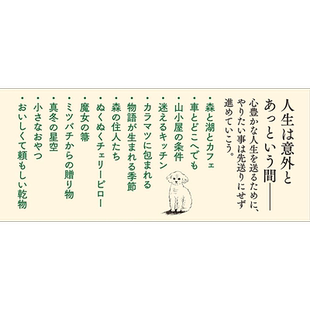 人生は意外と
あっという間――
心豊かな人生を送るために、
やりたい事は先送りにせず
進めていこう。
・森と湖とカフェ
・車とどこへでも
・山小屋の条件
・迷えるキッチン
・カラマツに包まれる
・物語が生まれる季節
・森の住人たち
・ぬくぬくチェリーピロー
・魔女の箒
・ミツバチからの贈り物
・真冬の星空
・小さなおやつ
・おいしくて頼もしい乾物